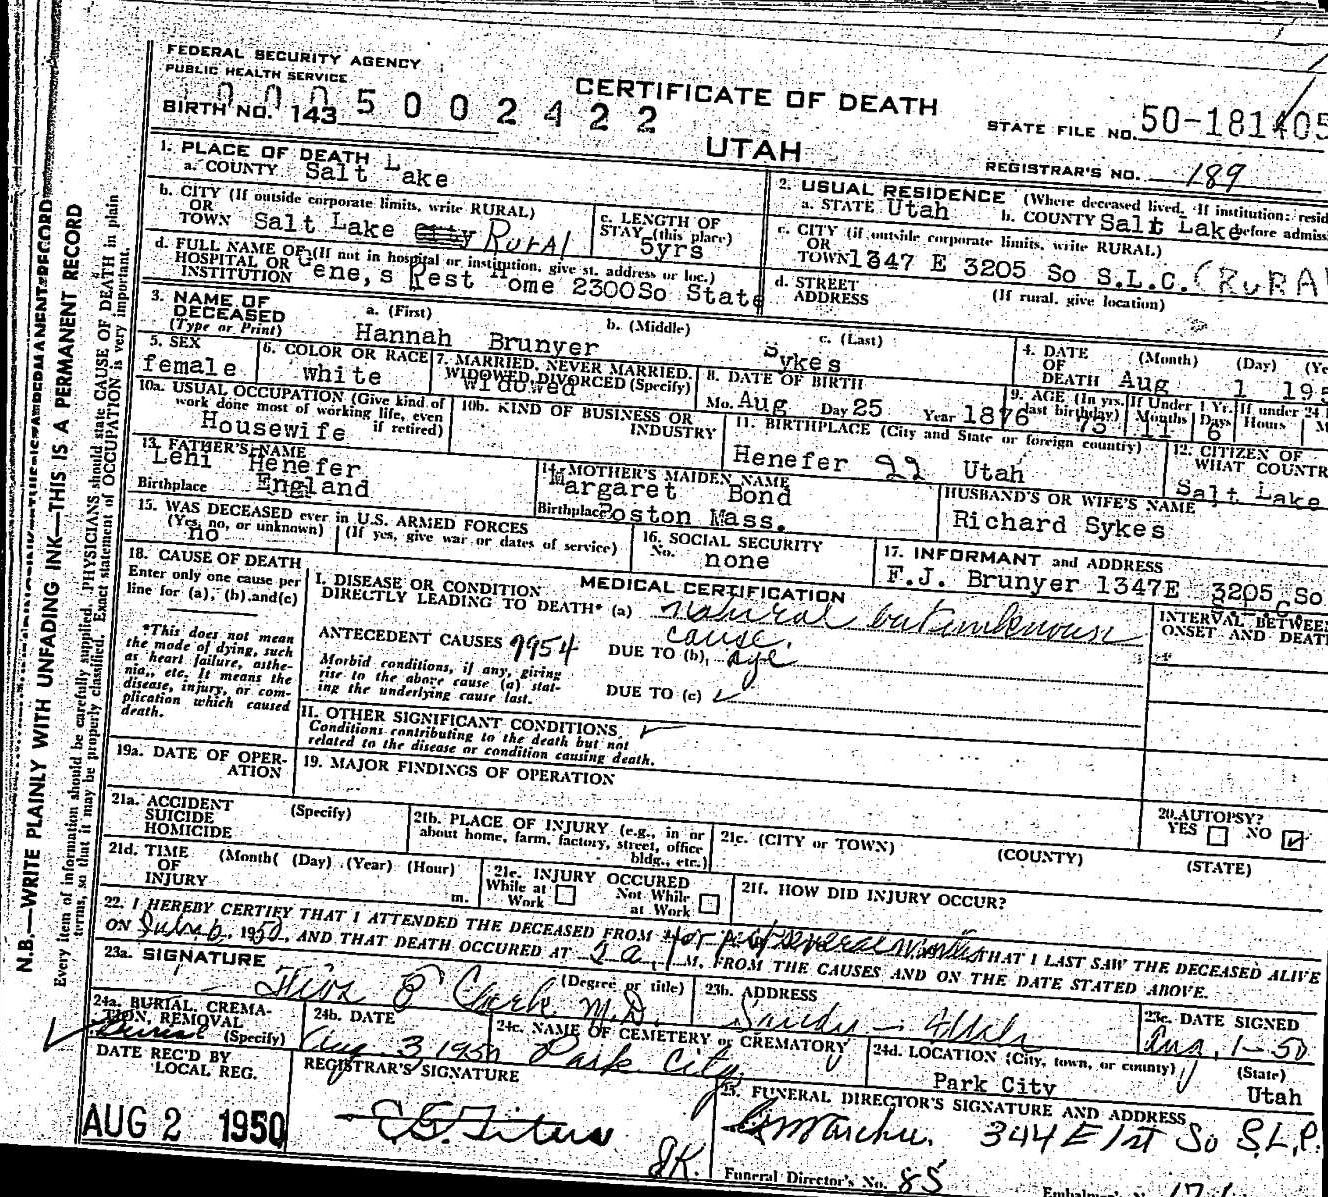 FEDERAL SECURITY AGENCY
PUBLIC HEALTH SERVICE
BIRTH NO. 143 0005002422
CERTIFICATE OF DEATH
UTAH
STATE FILE NO. 50-181405
REGISTRAR'S NO. 189
1. PLACE OF DEATH
a. COUNTY Salt Lake
b. CITY (If outside corporate limits, write RURAL)
OR
TOWN Salt Lake City Rural
c. LENGTH OF
STAY (this place)
5yrs
d. FULL NAME OF (If not in hospital or institution, give st. address or loc.)
HOSPITAL OR
INSTITUTION Gene,s Rest Home 2300So State
2. USUAL RESIDENCE (Where deceased lived. If institution: resid
a. STATE Utah b. COUNTY Salt Lake before admiss
c. CITY (if outside corporate limits, write RURAL)
OR
TOWN 1347 E 3205 So S.L.C. (RURA
d. STREET
ADDRESS
(If rural, give location)
3. NAME OF
DECEASED
(Type or Print)
a. (First)
b. (Middle)
c. (Last)
Hannah Brunyer Sykes
4. DATE
OF
DEATH
(Month) (Day) (Ye
Aug 1 195
5. SEX
female
6. COLOR OR RACE
white
7. MARRIED, NEVER MARRIED,
WIDOWED, DIVORCED (Specify)
widowed
8. DATE OF BIRTH
Mo. Aug Day 25 Year 1876
9. AGE (In yrs. last birthday) 73
If Under 1 Yr. Months 11 Days 6
If under 24 Hours
10a. USUAL OCCUPATION (Give kind of
work done most of working life, even
if retired)
Housewife
10b. KIND OF BUSINESS OR
INDUSTRY
11. BIRTHPLACE (City and State or foreign country)
Henefer 22 Utah
12. CITIZEN OF
WHAT COUNTR
Salt Lake
13. FATHER'S NAME
Lehi Henefer
Birthplace England
14. MOTHER'S MAIDEN NAME
Margaret Bond
Birthplace Boston Mass.
HUSBAND'S OR WIFE'S NAME
Richard Sykes
15. WAS DECEASED ever in U.S. ARMED FORCES
(Yes, no, or unknown) (If yes, give war or dates of service)
no
16. SOCIAL SECURITY
No. none
17. INFORMANT and ADDRESS
F.J. Brunyer 1347E 3205 So
S.L.C.
18. CAUSE OF DEATH
Enter only one cause per
line for (a), (b) and (c)
*This does not mean
the mode of dying, such
as heart failure, asthe-
nia, etc. It means the
disease, injury, or com-
plication which caused
death.
MEDICAL CERTIFICATION
I. DISEASE OR CONDITION
DIRECTLY LEADING TO DEATH* (a) natural but unknown
cause.
ANTECEDENT CAUSES 9954
DUE TO (b) age
Morbid conditions, if any, giving
rise to the above cause (a) stat-
ing the underlying cause last.
DUE TO (c)
II. OTHER SIGNIFICANT CONDITIONS
Conditions contributing to the death but not
related to the disease or condition causing death.
INTERVAL BETWEEN
ONSET AND DEATH
19a. DATE OF OPER-
ATION
19. MAJOR FINDINGS OF OPERATION
20. AUTOPSY?
YES NO
21a. ACCIDENT
SUICIDE
HOMICIDE
(Specify)
21b. PLACE OF INJURY (e.g., in or
about home, farm, factory, street, office
bldg., etc.)
21c. (CITY or TOWN)
(COUNTY)
(STATE)
21d. TIME
OF
INJURY
(Month) (Day) (Year) (Hour)
m.
21e. INJURY OCCURED
While at
Work
Not While
at Work
21f. HOW DID INJURY OCCUR?
22. I HEREBY CERTIFY THAT I ATTENDED THE DECEASED FROM for past several months THAT I LAST SAW THE DECEASED ALIVE
ON 1950, AND THAT DEATH OCCURED AT 2 a M. FROM THE CAUSES AND ON THE DATE STATED ABOVE.
23a. SIGNATURE
(Degree or title)
M.D.
23b. ADDRESS
Sandy - Utah
23c. DATE SIGNED
Aug. 1-50
24a. BURIAL, CREMA-
TION, REMOVAL
(Specify)
Burial
24b. DATE
Aug. 3, 1950
24c. NAME OF CEMETERY or CREMATORY
Park City
24d. LOCATION (City, town, or county) (State)
Park City Utah
DATE REC'D BY
LOCAL REG.
AUG 2 1950
REGISTRAR'S SIGNATURE
JK.
25. FUNERAL DIRECTOR'S SIGNATURE AND ADDRESS
344 E 1st So S.L.
Funeral Director's No. 85
N.B.—WRITE PLAINLY WITH UNFADING INK—THIS IS A PERMANENT RECORD
Every item of information should be carefully supplied. PHYSICIANS should state CAUSE OF DEATH in plain
terms, so that it may be properly classified. Exact statement of OCCUPATION is very important.